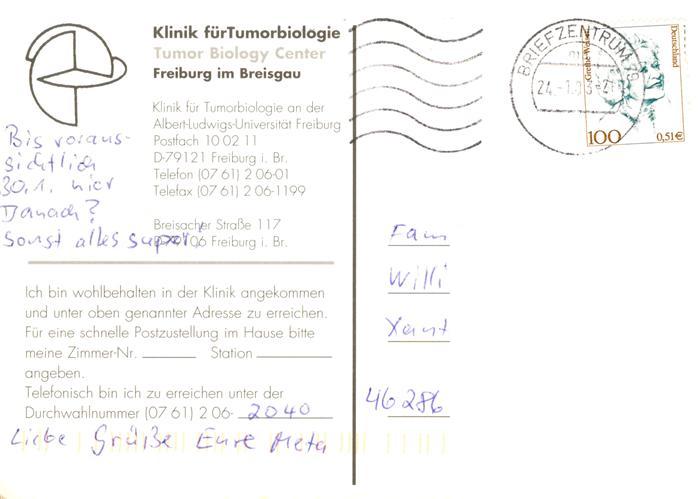 Klinik fürTumorbiologie
Tumor Biology Center
Freiburg im Breisgau
Klinik für Tumorbiologie an der
Albert-Ludwigs-Universität Freiburg
Postfach 10 02 11
D-79121 Freiburg i. Br.
Telefon (07 61) 2 06-01
Telefax (07 61) 2 06-1199
Breisacher Straße 117
D-79106 Freiburg i. Br.
Bis voraus-
sichtlich
30.1. hier
Danach?
sonst alles super!
Ich bin wohlbehalten in der Klinik angekommen
und unter oben genannter Adresse zu erreichen.
Für eine schnelle Postzustellung im Hause bitte
meine Zimmer-Nr. Station
angeben.
Telefonisch bin ich zu erreichen unter der
Durchwahlnummer (07 61) 2 06- 2040
Liebe Grüße Eure Meta
BRIEFZENTRUM 79
24.-1.03-21
Deutschland
100
0,51€
Fam
Willi
Xant
46286